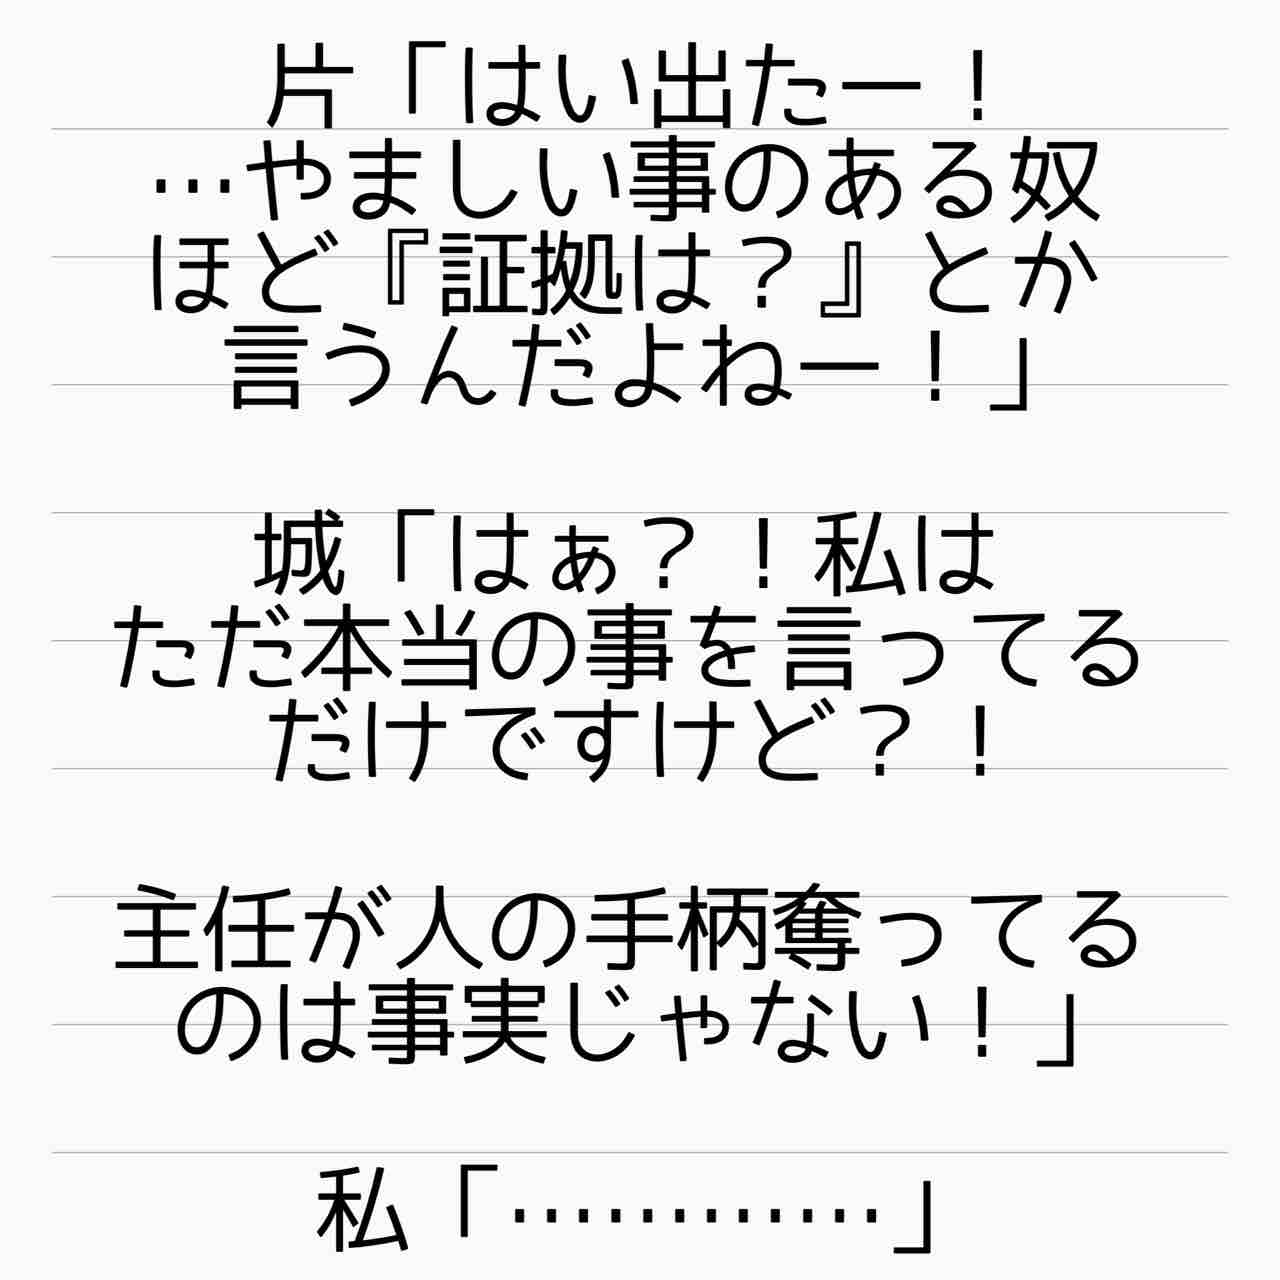 片「はい出たー！
…やましい事のある奴
ほど『証拠は？』とか
言うんだよねー！」
城「はぁ？！私は
ただ本当の事を言ってる
だけですけど？！
主任が人の手柄奪ってる
のは事実じゃない！」
私「…………」